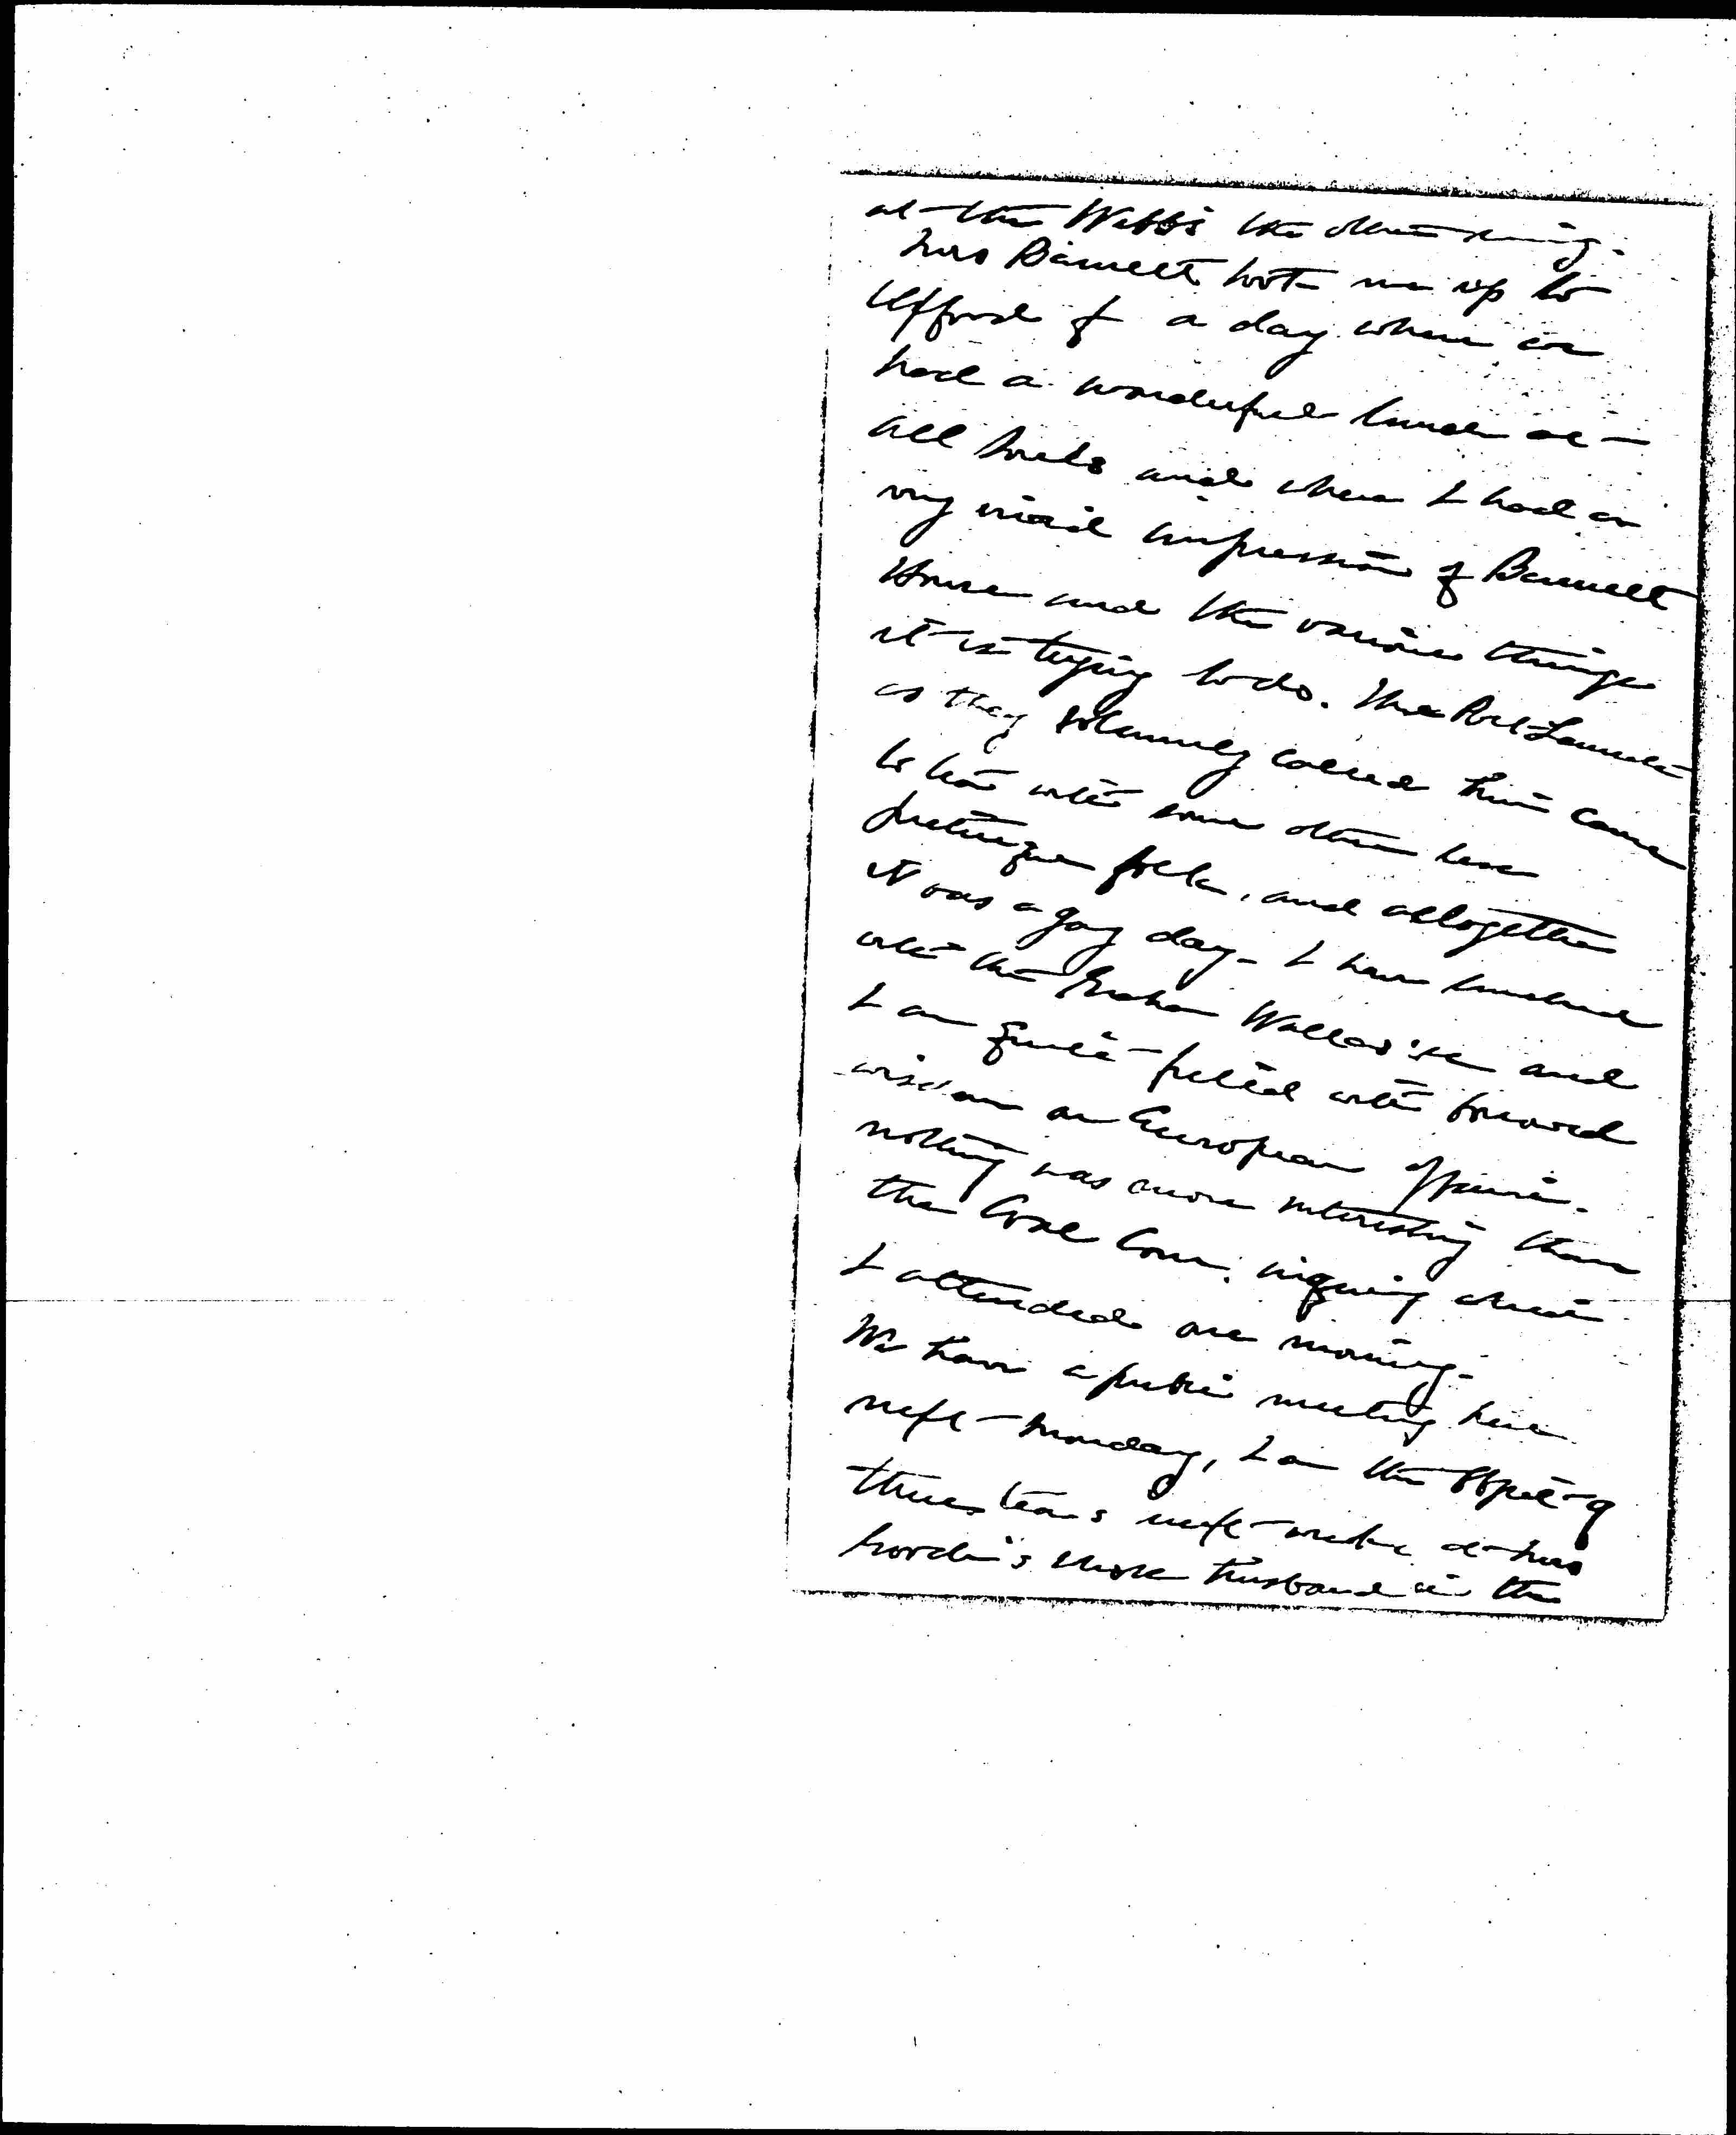 at the Webb's the other evening.
Mrs Barnett took me up to
Oxford for a day where we
had a wonderful lunch at
All Souls and where I had a
very vivid impression of Barnett
House and the various things
it is trying to do. The Poet Laureate
as they solemnly called him came
to tea with some other less
folk, and altogether
it was a gay day. I have lunched
with the Graham Wallas'se and
I am quite filled with
wisdom on European affairs.
nothing was more interesting than
the Coal Com. inquiry which
I attended one morning.
We have a public meeting here
next Monday, I am the object of
three teas next week, at Mrs
whose husband is the